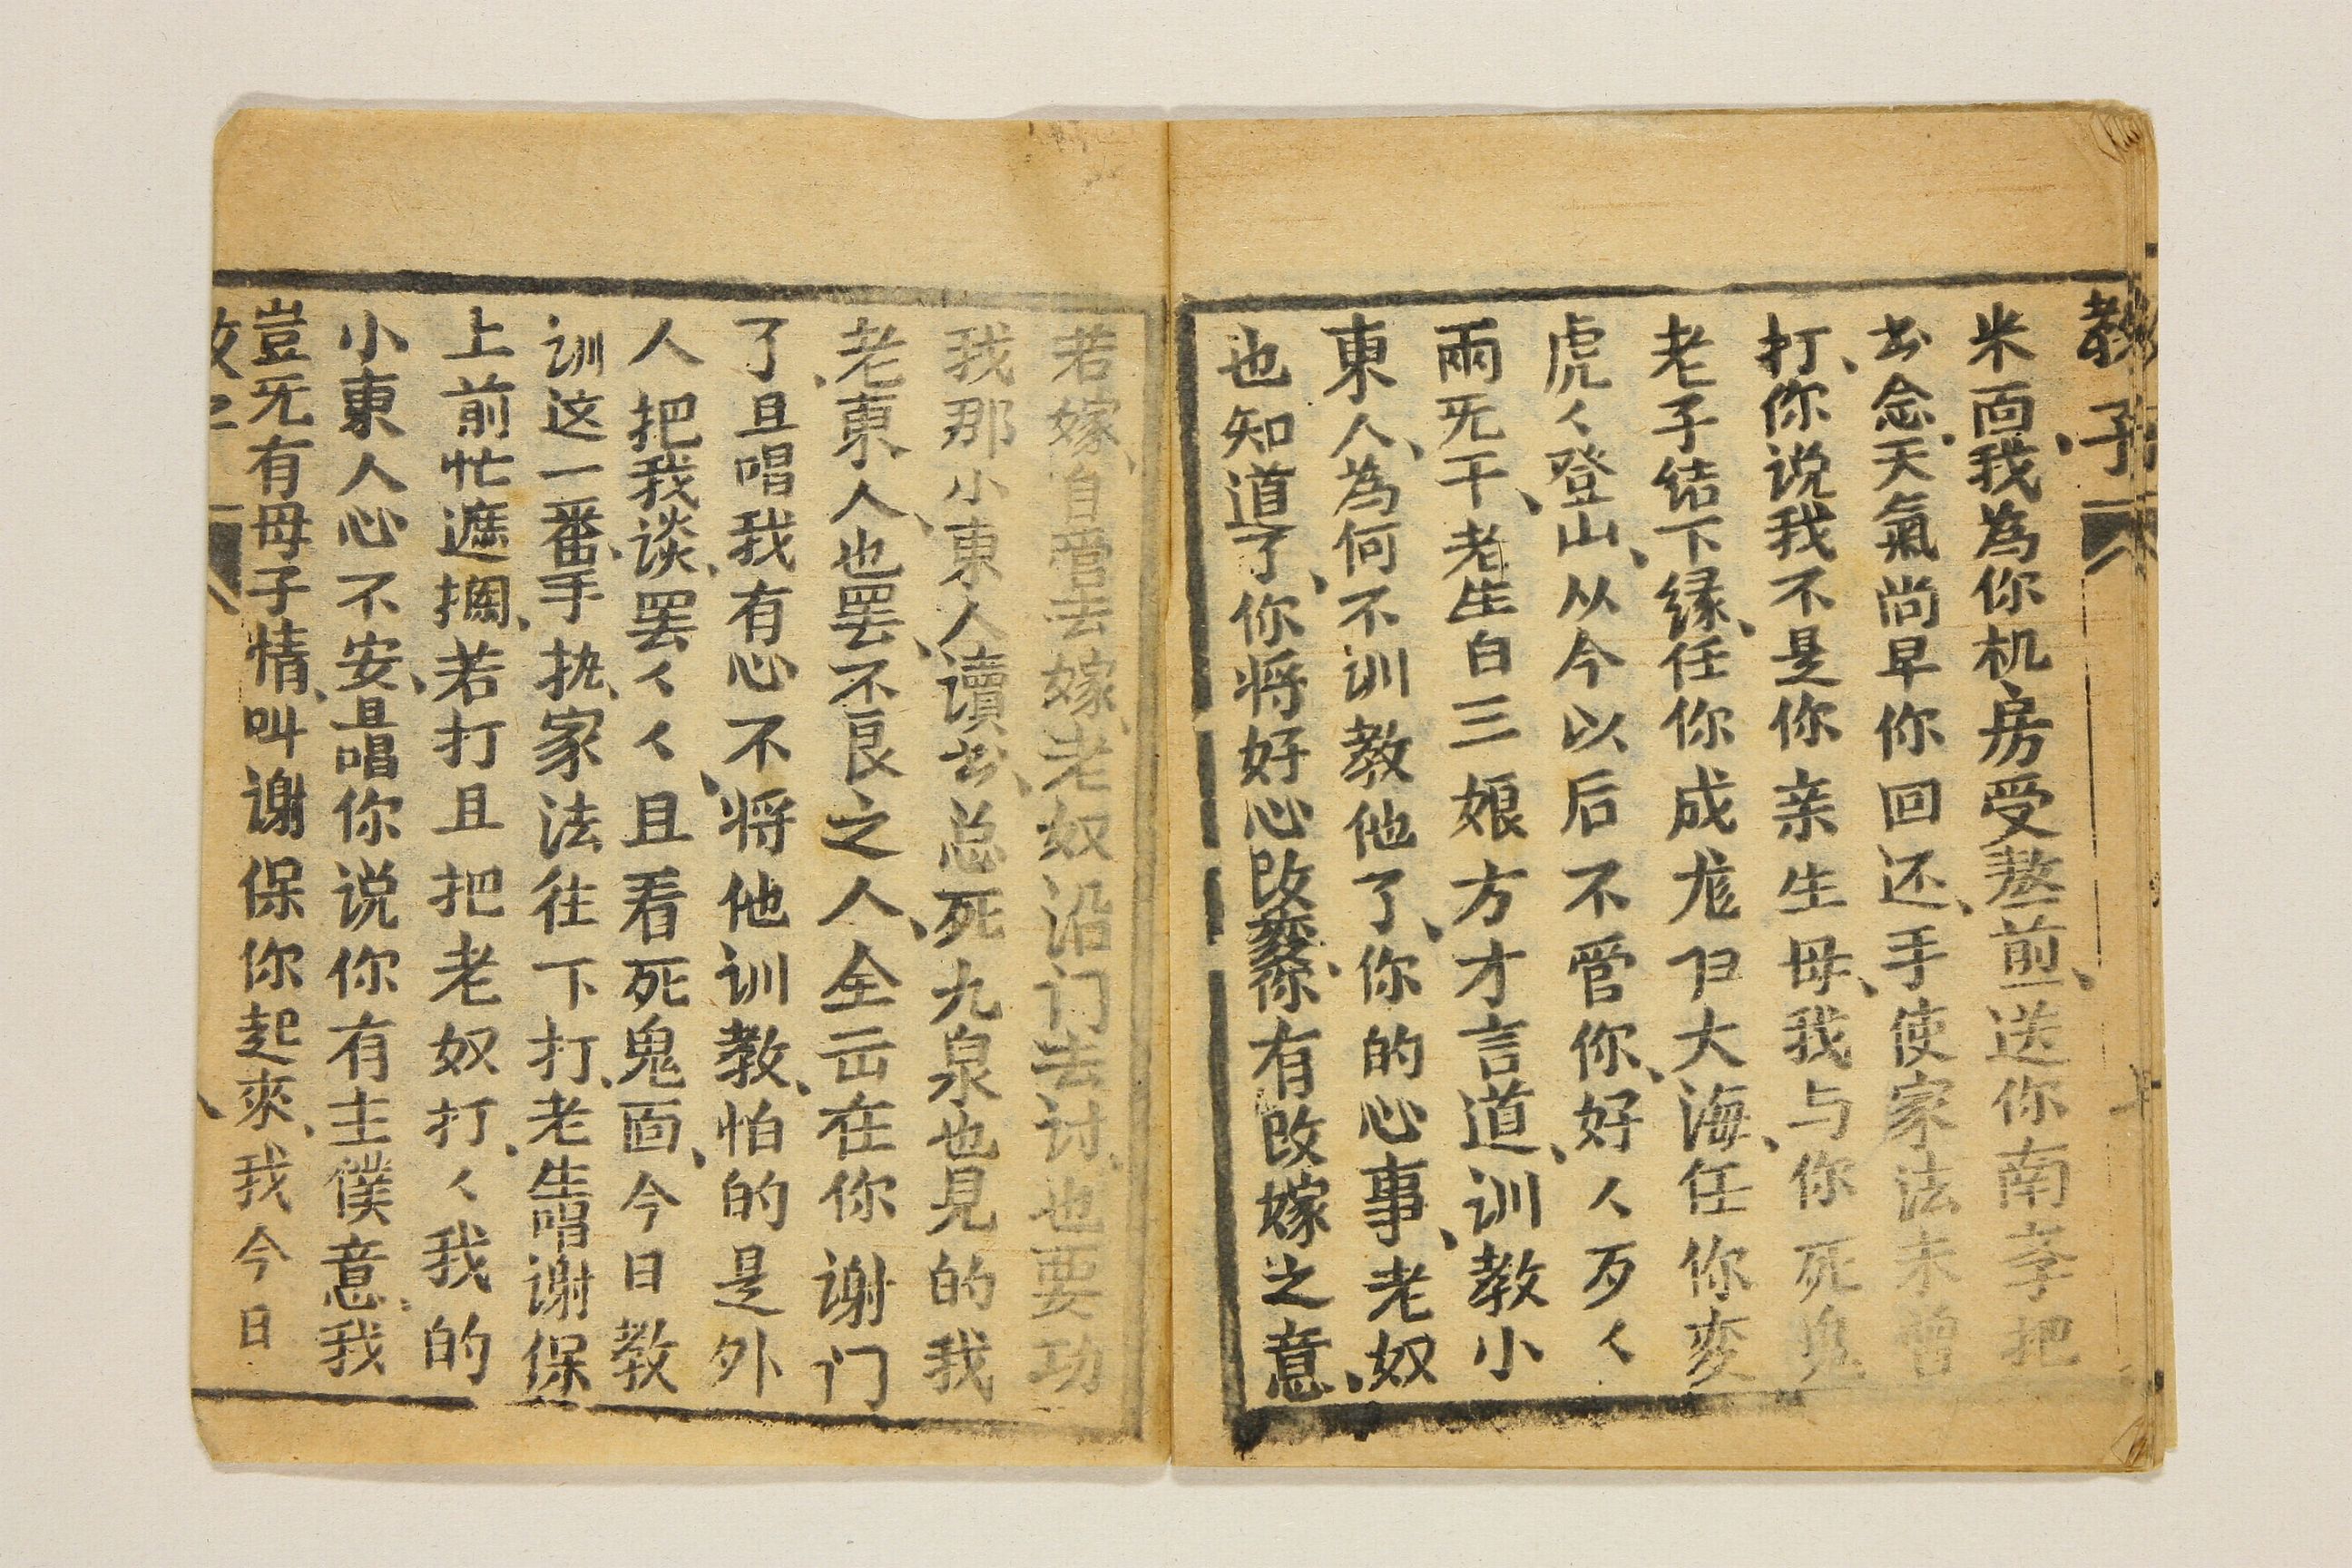 教子
米面我為你机房受熬煎送你南孝把
书念天氣尚早你回还手使家法未曾
打你说我不是你亲生母我与你死鬼
老子结下缘任你成龙归大海任你变
虎〻登山从今以后不管你好人〻歹〻
兩旡干老生白三娘方才言道训教小
東人為何不训教他了你的心事老奴
也知道了你将好心改变你有改嫁之意
若嫁自管去嫁老奴沿门去讨也要功
我那小東人讀书总死九泉也見的我
老東人也罢不良之人全㱏在你谢门
了且唱我有心不将他训教怕的是外
人把我谈罢〻〻且看死鬼面今日教
训这一番手执家法往下打老生唱谢保
上前忙遮拦若打且把老奴打〻我的
小東人心不安旦唱你说你有主僕意我
豈旡有母子情叫谢保你起來我今日